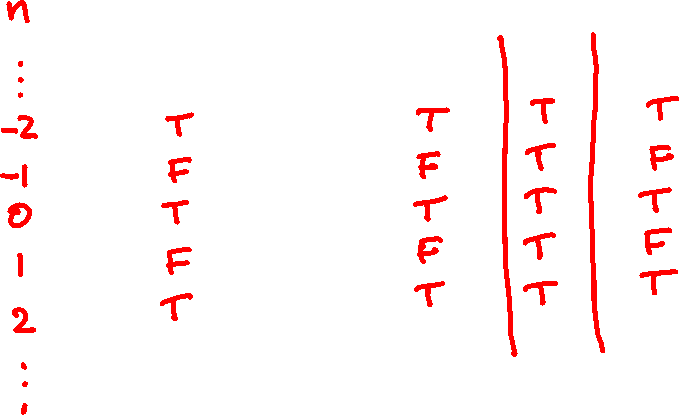 n
⋮
-2 T T T T
-1 F F T F
0 T T T T
1 F F T F
2 T T T T
⋮